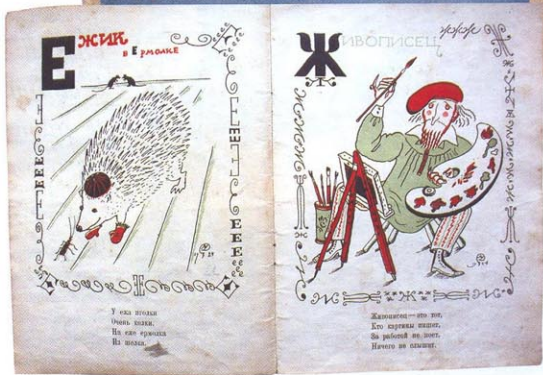 Ежик
в Ермолке
У ежа иголки
Очень колки.
На еже ермолка
Из шелка.
Живописец
Живописец — это тот,
Кто картины пишет,
За работой он поет,
Ничего не слышит.